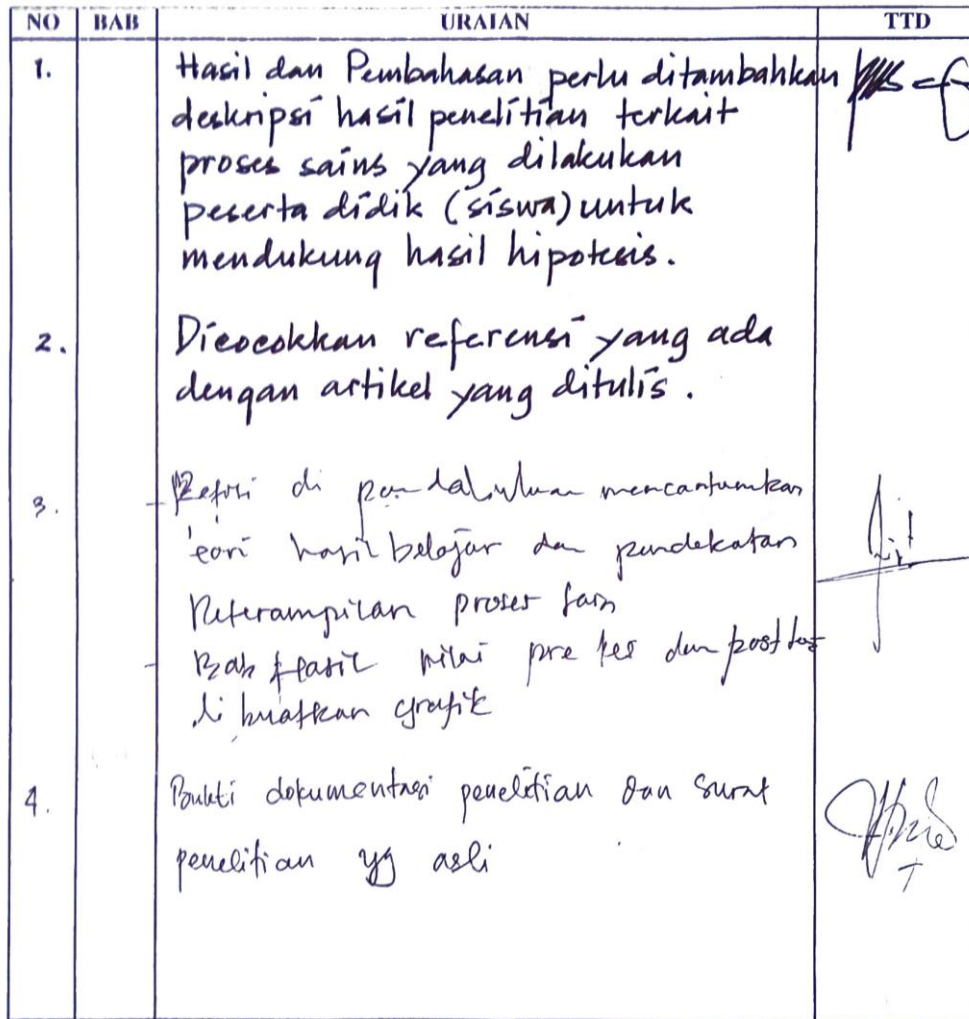 NO BAB URAIAN TTD
1. Hasil dan Pembahasan perlu ditambahkan
deskripsi hasil penelitian terkait
proses sains yang dilakukan
peserta didik (siswa) untuk
mendukung hasil hipotesis.
2. Dicocokkan referensi yang ada
dengan artikel yang ditulis.
3. - di pendahuluan mencantumkan
teori hasil belajar dan pendekatan
Keterampilan proses sain
- Bab Hasil nilai pre tes dan post tes
di buatkan grafik
4. Bukti dokumentasi penelitian dan surat
penelitian yg asli